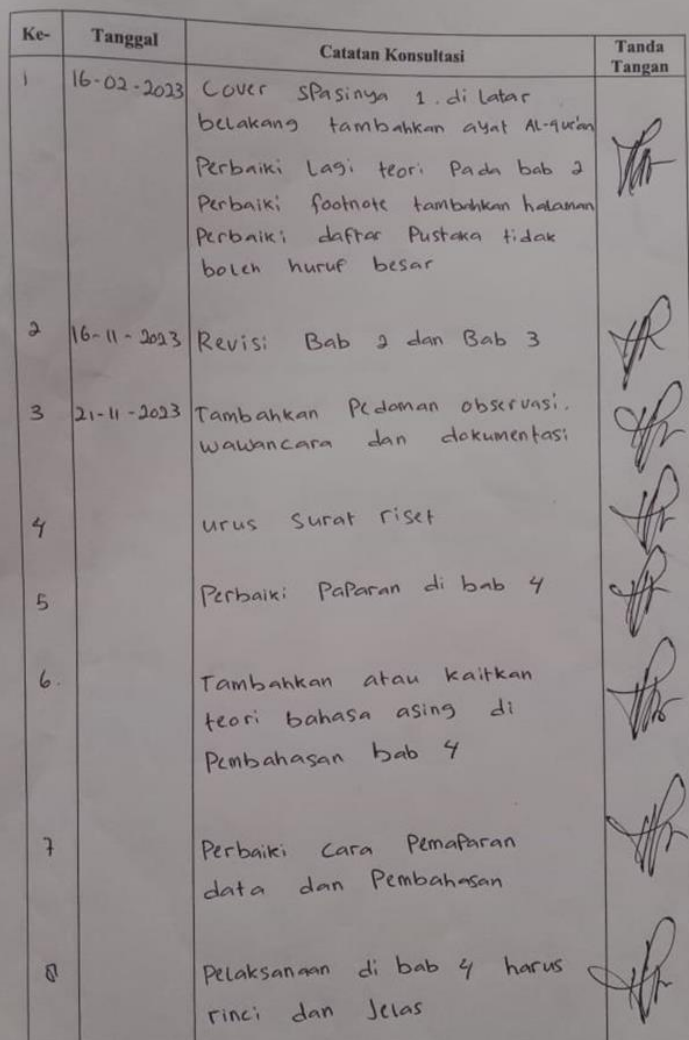 Ke- Tanggal Catatan Konsultasi Tanda
Tangan
1 16-02-2023 Cover spasinya 1. di Latar
belakang tambahkan ayat Al-qur'an
Perbaiki Lagi teori Pada bab 2
Perbaiki footnote tambahkan halaman
Perbaiki daftar Pustaka tidak
boleh huruf besar
2 16-11-2023 Revisi Bab 2 dan Bab 3
3 21-11-2023 Tambahkan Pedoman observasi.
wawancara dan dokumentasi
4 urus surat riset
5 Perbaiki Paparan di bab 4
6. Tambahkan atau kaitkan
teori bahasa asing di
Pembahasan bab 4
7 Perbaiki Cara Pemaparan
data dan Pembahasan
8 Pelaksanaan di bab 4 harus
rinci dan Jelas